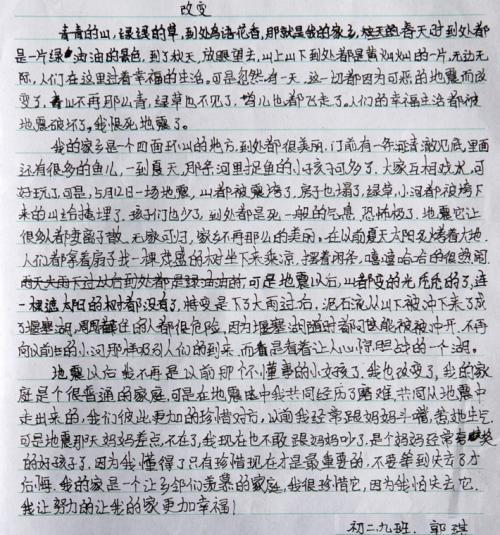 改变
青青的山,绿绿的草,到处鸟语花香,那就是我的家乡,春天时到处都
是一片绿油油的景色,到了秋天,放眼望去,山上山下到处都是黄灿灿的一片,无边无
际,人们在这里过着幸福的生活。可是忽然有一天,这一切都因可恶的地震而改
变了,青山不再那么青,绿草也不见了,鸟儿也都飞走了。人们的幸福生活都被
地震破坏了,我恨死地震了。
我的家乡是一个四面环山的地方,到处都很美丽,门前有一条河清澈见底,里面
还有很多的鱼儿,一到夏天,那条河里捉鱼的小孩子可多了,大家互相戏水,可
好玩了,可是,5月12日一场地震,山都被震垮了,房子也塌了,绿草,小河都被垮下
来的山给掩埋了,孩子们也少了,到处都是死一般的气息,恐怖极了,地震它让
很多人都妻离子散,无家可归,家乡不再那么的美丽。在以前夏天太阳炙烤着大地,
人们都拿着扇子找一棵茂盛的树坐下来乘凉,摆着闲条,嘻嘻哈哈的很热闹
雨天大雨下过以后到处都是绿油油的,可是地震以后,山都变的光秃秃的了,连
一棵遮太阳的树都没有了,特变是下了大雨过后,泥石流从山下被冲下来了成
了堰塞湖,周围住的人都很危险,因为堰塞湖随时都可能被被冲开,不再
向以前的小河那样吸引人们的到来,而看是看着让人心惊胆战的一个湖。
地震以后我不再是以前那个不懂事的小女孩了,我也改变了,我的家
庭是个很普通的家庭,可是在地震途中我共同经历了磨难,共同从地震中
走出来的,我们彼此更加的珍惜对方,以前我经常跟妈妈斗嘴,惹她生气
可是地震那天妈妈差点不在了,我现在也不敢跟妈妈吵了,是个妈妈经常夸奖
的好孩子了,因为我懂得了只有珍惜现在才是最重要的,不要等到失去了才
后悔,我的家是一个让乡邻们羡慕的家庭,我很珍惜它,因为我怕失去它,
我让努力的让我的家更加幸福!
初二九班,郭琪